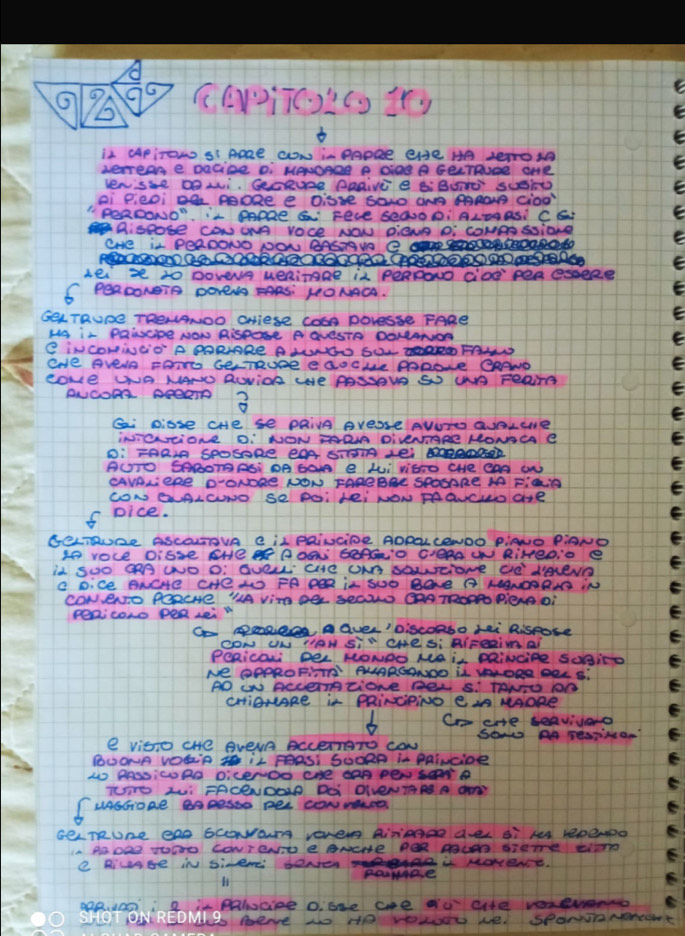 CAPITOLO 10
IL CAPITOLO SI APRE CON IL PADRE CHE HA LETTO LA
LETTERA E DECIDE DI MANDARE A DIRE A GELTRUDE CHE
VENISSE DA LUI. GELTRUDE ARRIVÒ E SI BUTTÒ SUBITO
AI PIEDI DEL PADRE E DISSE SOLO UNA PAROLA CIOÈ
"PERDONO". IL PADRE GLI FECE SEGNO DI ALZARSI E GLI
RISPOSE CON UNA VOCE NON PIENA DI COMPASSIONE
CHE IL PERDONO NON BASTAVA E
LEI SE LO DOVEVA MERITARE IL PERDONO CIOÈ PER ESSERE
PERDONATA DOVEVA FARSI MONACA.
GELTRUDE TREMANDO CHIESE COSA DOVESSE FARE
MA IL PRINCIPE NON RISPOSE A QUESTA DOMANDA
E INCOMINCIÒ A PARLARE A LUNGO SUL FALLO
CHE AVEVA FATTO GELTRUDE E QUELLE PAROLE ERANO
COME UNA MANO RUVIDA CHE PASSAVA SU UNA FERITA
ANCORA APERTA
GLI DISSE CHE SE PRIMA AVESSE AVUTO QUALCHE
INTENZIONE DI NON FARLA DIVENTARE MONACA E
DI FARLA SPOSARE ERA STATA LEI
AUTO SABOTARSI DA SOLA E LUI VISTO CHE ERA UN
CAVALIERE D'ONORE NON FAREBBE SPOSARE LA FIGLIA
CON QUALCUNO SE POI LEI NON FA QUELLO CHE
DICE.
GELTRUDE ASCOLTAVA E IL PRINCIPE ADDOLCENDO PIANO PIANO
LA VOCE DISSE CHE A OGNI SBAGLIO C'ERA UN RIMEDIO E
IL SUO ERA UNO DI QUELLI CHE UNA SOLUZIONE CE L'AVEVA
E DICE ANCHE CHE LO FA PER IL SUO BENE A MANDARLA IN
CONVENTO PERCHÈ "LA VITA DEL SECOLO ERA TROPPO PIENA DI
PERICOLO PER LEI"
A QUEL DISCORSO LEI RISPOSE
CON UN "AH SÌ" CHE SI RIFERIVA AI
PERICOLI DEL MONDO MA IL PRINCIPE SUBITO
NE APPROFITTÒ ALLARGANDO IL VALORE DEL SÌ
AD UN ACCETTAZIONE DEL SÌ TANTO DA
CHIAMARE IL PRINCIPINO E LA MADRE
CHE SERVIVANO
SOLO DA TESTIMONI
E VISTO CHE AVEVA ACCETTATO CON
BUONA VOGLIA IL FARSI SUORA IL PRINCIPE
LO RASSICURA DICENDO CHE ORA PENSERÀ A
TUTTO LUI FACENDOLA POI DIVENTARE A
MAGGIORE BADESSA DEL CONVENTO.
GELTRUDE ERA SCONVOLTA VOLEVA RITIRARE QUEL SÌ MA VEDENDO
IL PADRE TUTTO CONTENTO E ANCHE PER PAURA STETTE ZITTO
E RIMASE IN SILENZIO SENZA IL MOMENTO.
ARRIVATI I 2 IL PRINCIPE DISSE CHE CIÒ CHE VOLEVAMO
BENE LO HA VOLUTO LEI SPONTANEAMENTE
SHOT ON REDMI 9
AI QUAD CAMERA